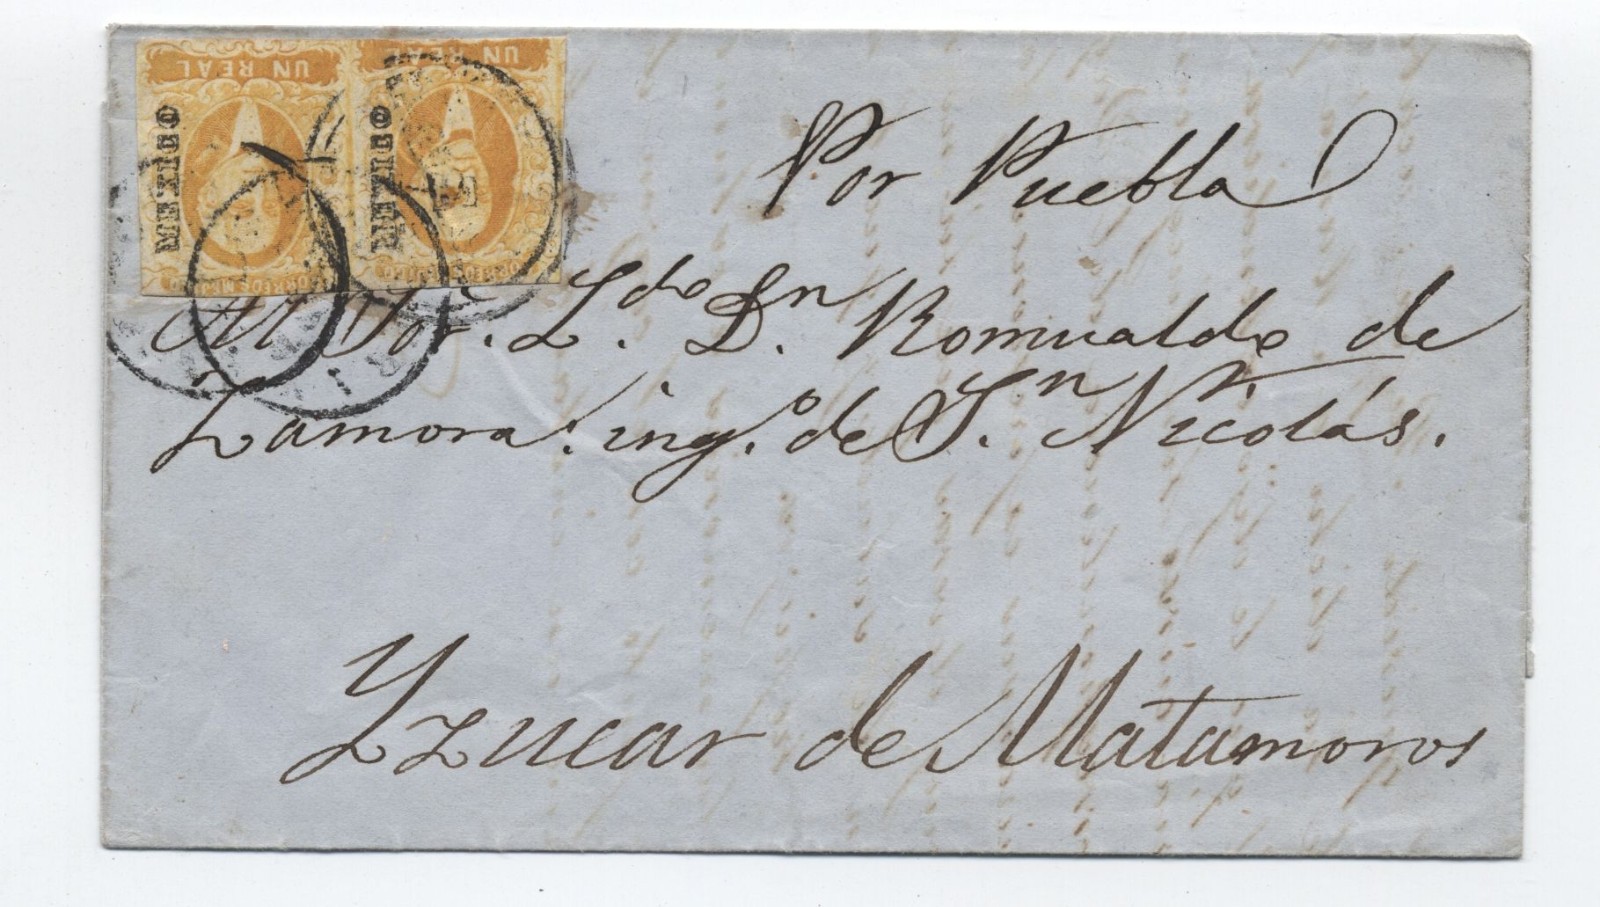 UN REAL
MEXICO
CORREOS MEJICO
UN REAL
MEXICO
CORREOS MEJICO
Por Puebla
Al Sor. Ldo. Dn. Romualdo de
Zamora: ing.o de Sn. Nicolás.
Yzucar de Matamoros